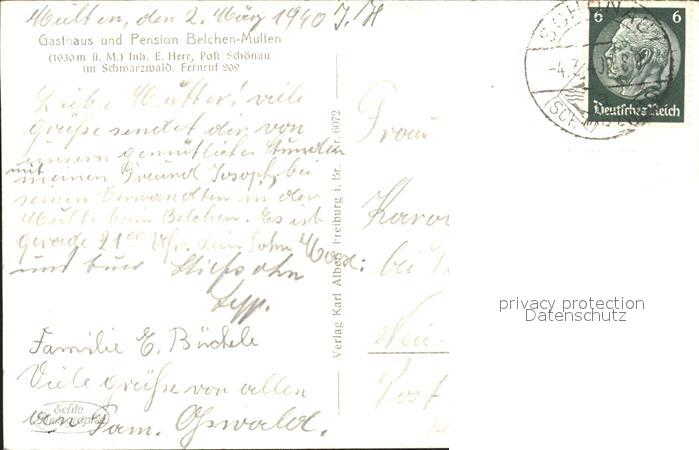 Multen, den 2. März 1940 J. H
Gasthaus und Pension Belchen-Multen
(1030 m ü. M.) Inh. E. Herr, Post Schönau
im Schwarzwald. Fernruf 209
Liebe Mutter! viele
grüße sendet dir von
unsern gemütlichen Stunden
mit meinen Freund Joseph, bei
seinen Verwandten in der
Multe beim Belchen. Es ist
gerade 21 00 Uhr. dein Sohn Max:
und Stiefsohn
Sepp.
Familie E. Büchele
Viele grüße von allen
Fam. Oswald.
Echte
Photographie
Verlag Karl Alber, Freiburg i. Br. Nr. 6072
Frau
bei
Neu-
Post
6 6
Deutsches Reich
SCHÖNAU
-4.3.40
(SCHW
privacy protection
Datenschutz